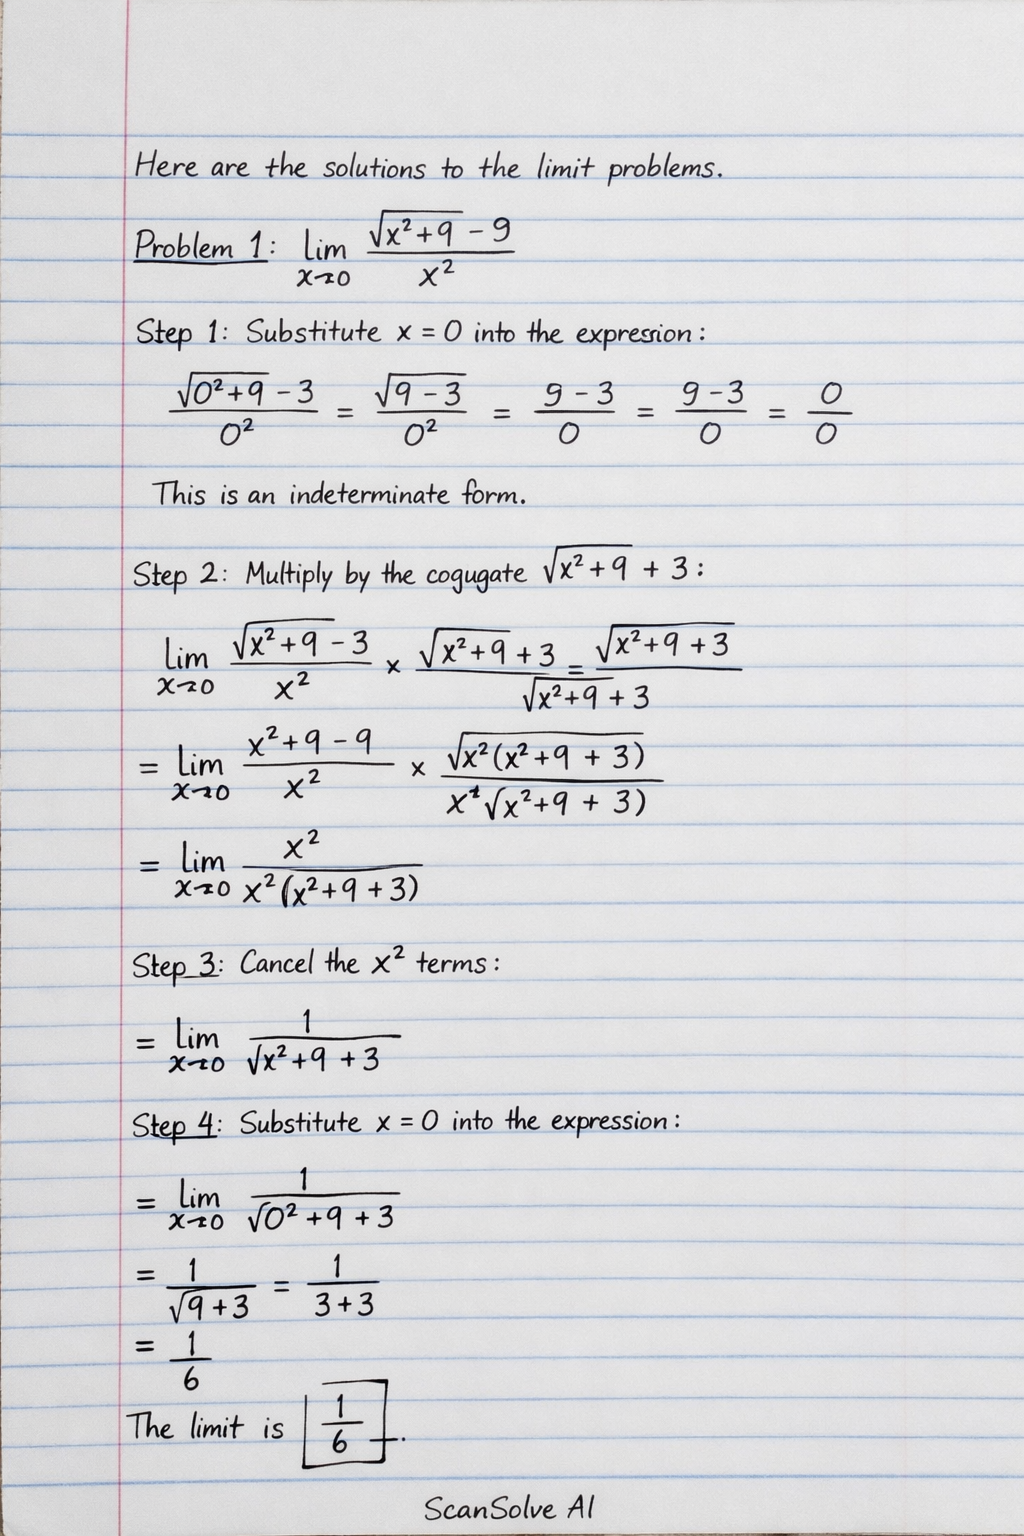 Here are the solutions to the limit problems.
Problem 1: lim x→0 (√(x²+9) - 9)/x²
Step 1: Substitute x = 0 into the expression:
(√(0²+9) - 3)/0² = √(9 - 3)/0² = (9 - 3)/0 = (9 - 3)/0 = 0/0
This is an indeterminate form.
Step 2: Multiply by the cogugate √(x²+9) + 3:
lim x→0 (√(x²+9) - 3)/x² × (√(x²+9) + 3 = √(x²+9 + 3))/(√(x²+9) + 3)
= lim x→0 (x²+9 - 9)/x² × √(x²(x²+9 + 3))/(x √x²+9 + 3)
= lim x→0 x²/(x²(x²+9 + 3))
Step 3: Cancel the x² terms:
= lim x→0 1/(√x²+9 + 3)
Step 4: Substitute x = 0 into the expression:
= lim x→0 1/(√0² +9 + 3)
= 1/√(9 + 3) = 1/(3 + 3)
= 1/6
The limit is 1/6.
ScanSolve AI